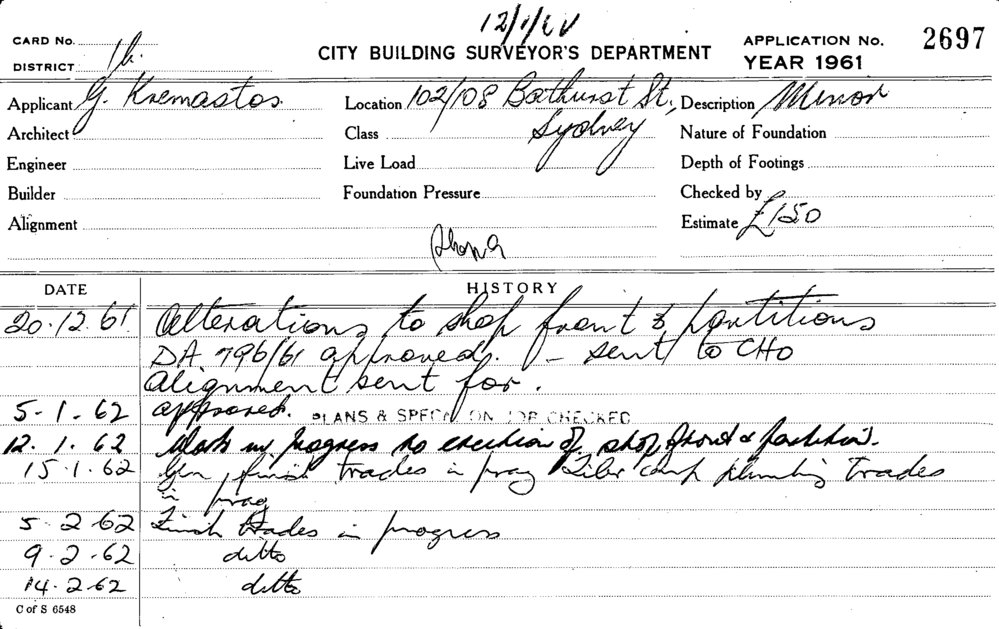 CARD No.
DISTRICT
CITY BUILDING SURVEYOR'S DEPARTMENT
APPLICATION No. 2697
YEAR 1961
Applicant G. Kremastos. Location 102/108 Bathurst St., Description Minor
Architect Class Sydney Nature of Foundation
Engineer Live Load Depth of Footings
Builder Foundation Pressure Checked by
Alignment Estimate £150
DATE HISTORY
20.12.61 Alterations to shop front & partitions
DA 796/61 approved. — sent to CHO
Alignment sent for.
5.1.62 approved. PLANS & SPECN ON JOB CHECKED
12.1.62 Work in progress to erection of shop front & partition.
15.1.62 Gen finish trades in prog plumbing trades
in prog
5-2-62 Finish trades in progress
9-2-62 ditto
14-2-62 ditto
C of S 6548